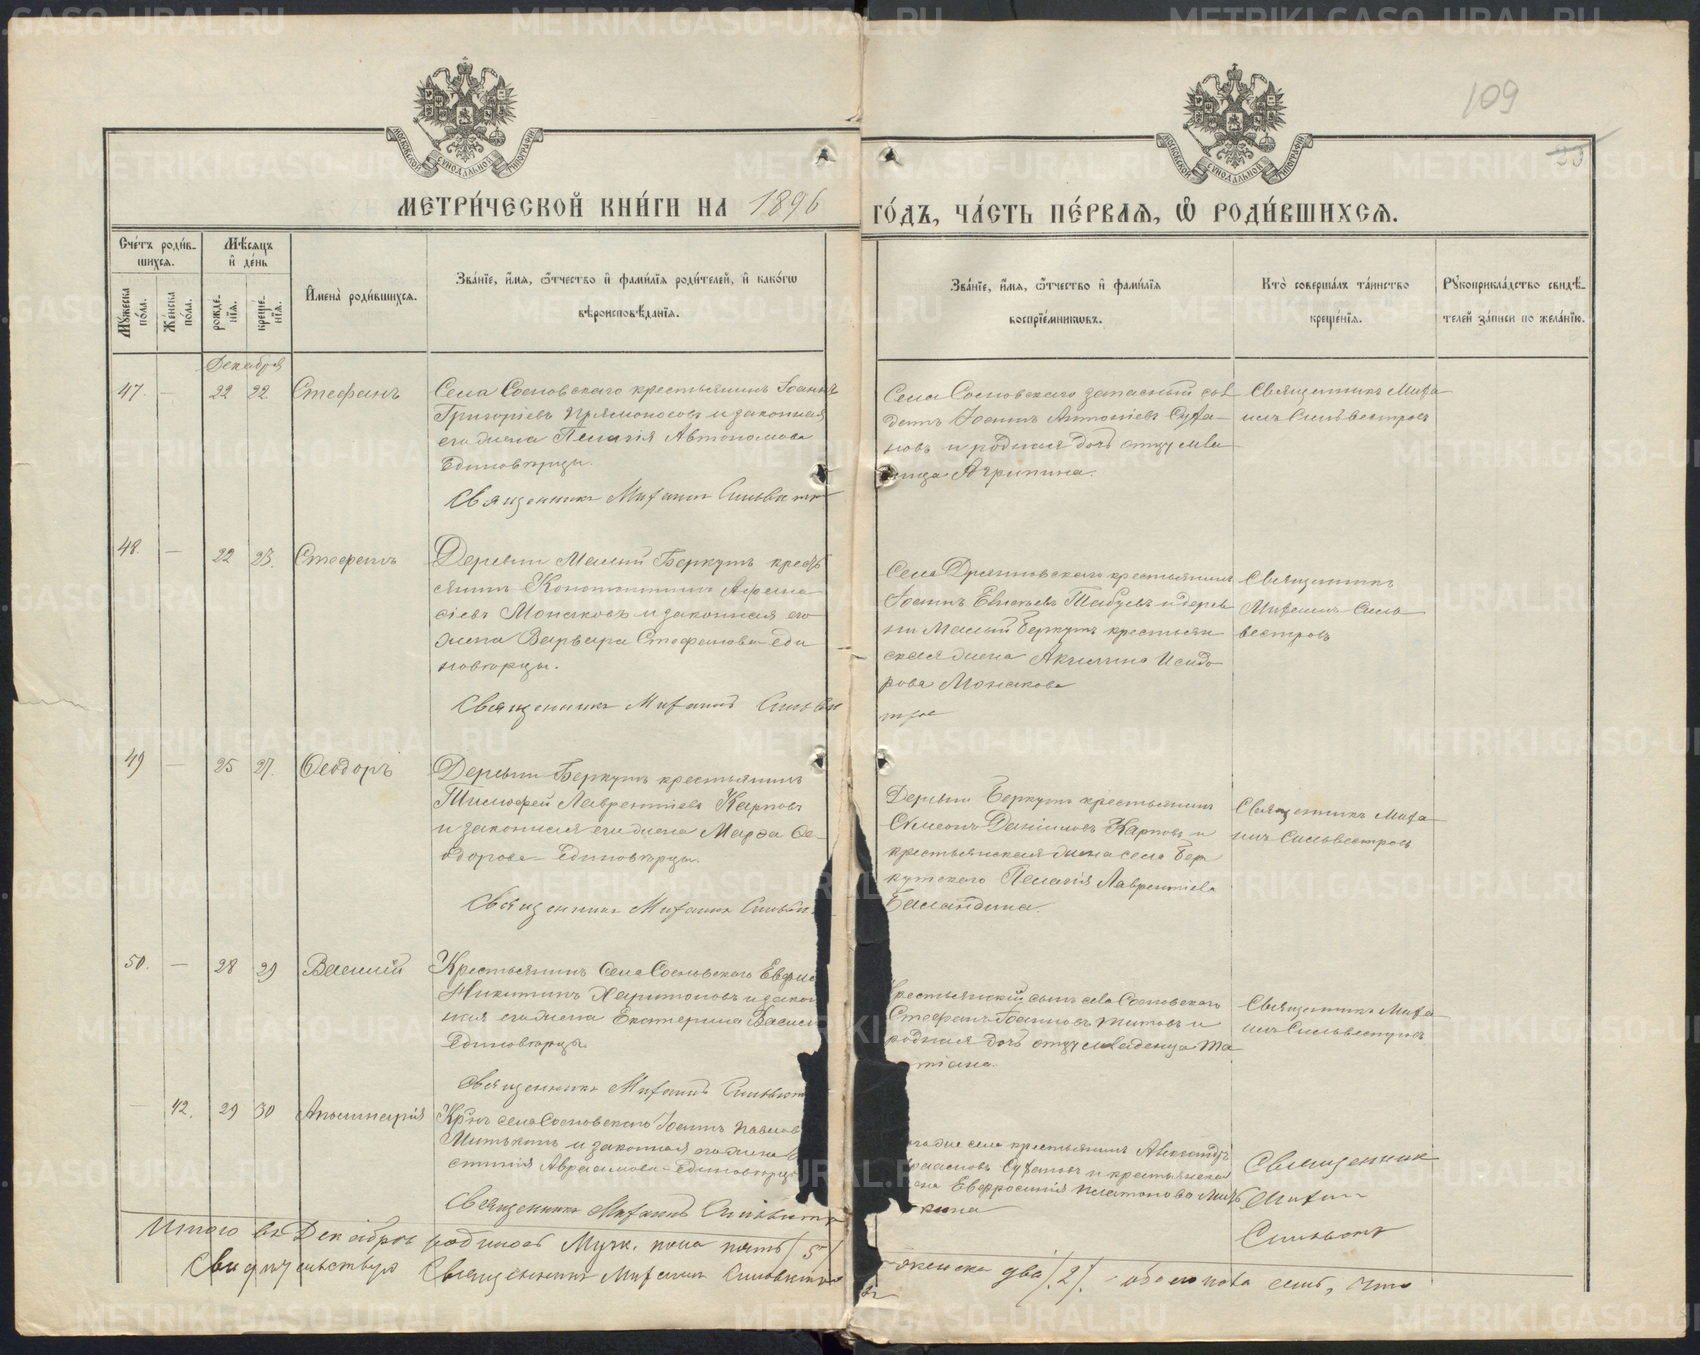 109
МОСКОВСКОЙ СѴНОДАЛЬНОЙ ТИПОГРАФІИ
МОСКОВСКОЙ СѴНОДАЛЬНОЙ ТИПОГРАФІИ
МЕТРИ́ЧЕСКОЙ КНИ́ГИ НА 1896
ГО́ДЪ, ЧА́СТЬ ПЕ́РВАЯ, Ѡ҆ РОДИ́ВШИХСЯ.
Сче́тъ роди́в-
шихся.
Мѣ́сяцъ
и҆ де́нь
Мꙋ́жеска по́ла.
Же́нска по́ла.
рожде́нїя.
креще́нїя.
И҆мена̀ роди́вшихся.
Зва́нїе, и҆́мя, ѻ҆́тчество и҆ фами́лїя роди́телей, и҆ како́гѡ
вѣроисповѣ́данїя.
Зва́нїе, и҆́мя, ѻ҆́тчество и҆ фами́лїя
воспрїе́мникѡвъ.
Кто̀ соверша́лъ та́инство
креще́нїя.
Рꙋкоприкла́дство свидѣ́-
телей за́писи по жела́нїю.
Декабря
47. — 22 22 Стефанъ
Села Сосновскаго крестьянинъ Іоаннъ
Григоріевъ Прямоносовъ и законная
его жена Пелагія Автономова
Единовѣрцы.
Священникъ Михаилъ Сильвестр
Села Сосновскаго запасный сол
датъ Іоаннъ Антоніевъ Суха-
новъ и родная дочь отцу мла
денца Агрипина.
Священникъ Миха
илъ Сильвестровъ
48. — 22 23. Стефанъ
Деревни Малый Беркутъ кресть
янинъ Константинъ Афана
сіевъ Монаковъ и законная его
жена Варвара Стефанова еди
новѣрцы.
Священникъ Михаилъ Сильве
Села Дрянновскаго крестьянинъ
Іоаннъ Евграфьевъ и дерев
ни Малый Беркутъ крестьян
ская жена Акилина Исидо
рова Монакова
Священникъ
Михаилъ Силь
вестровъ
49 — 25 27. Ѳеодоръ
Деревни Беркутъ крестьянинъ
Тимофей Лаврентіевъ Карповъ
и законная его жена Марѳа Ѳе-
одорова Единовѣрцы.
Священникъ Михаилъ Сильв
Деревни Беркутъ крестьянинъ
Симеонъ Даніиловъ Карповъ и
крестьянская жена села Бер
кутскаго Пелагія Лаврентіева
Баландина.
Священникъ Миха
илъ Сильвестровъ
50. — 28 29 Василій
Крестьянинъ села Сосновскаго
Никитинъ Харитоновъ и закон
ная его жена Екатерина Васил
Единовѣрцы
Священникъ Михаилъ Сильвест
рестьянскій сынъ села Сосновскаго
Стефанъ Іоанновъ Титовъ и
родная дочь отцу младенца Та
тіана.
Священникъ Миха
илъ Сильвестровъ
— 42. 29 30 Аполинарія
Кр-нъ села Сосновскаго Іоаннъ Павлов
Митькинъ и законная его жена
Авраамова единовѣрцы
Священникъ Михаилъ Сильвестр
села крестьянинъ Александръ
Сухановъ и крестьянская
Евфросинія Платонова Мить
кина
Священник
Михаил
Сильвест
Итого въ Декабрѣ родилось Муж. пола пять /5/
женска два /.2/. обоего пола семь, что
Свидѣтельствую Священникъ Михаилъ Сильвестро
въ
METRIKI.GASO-URAL.RU